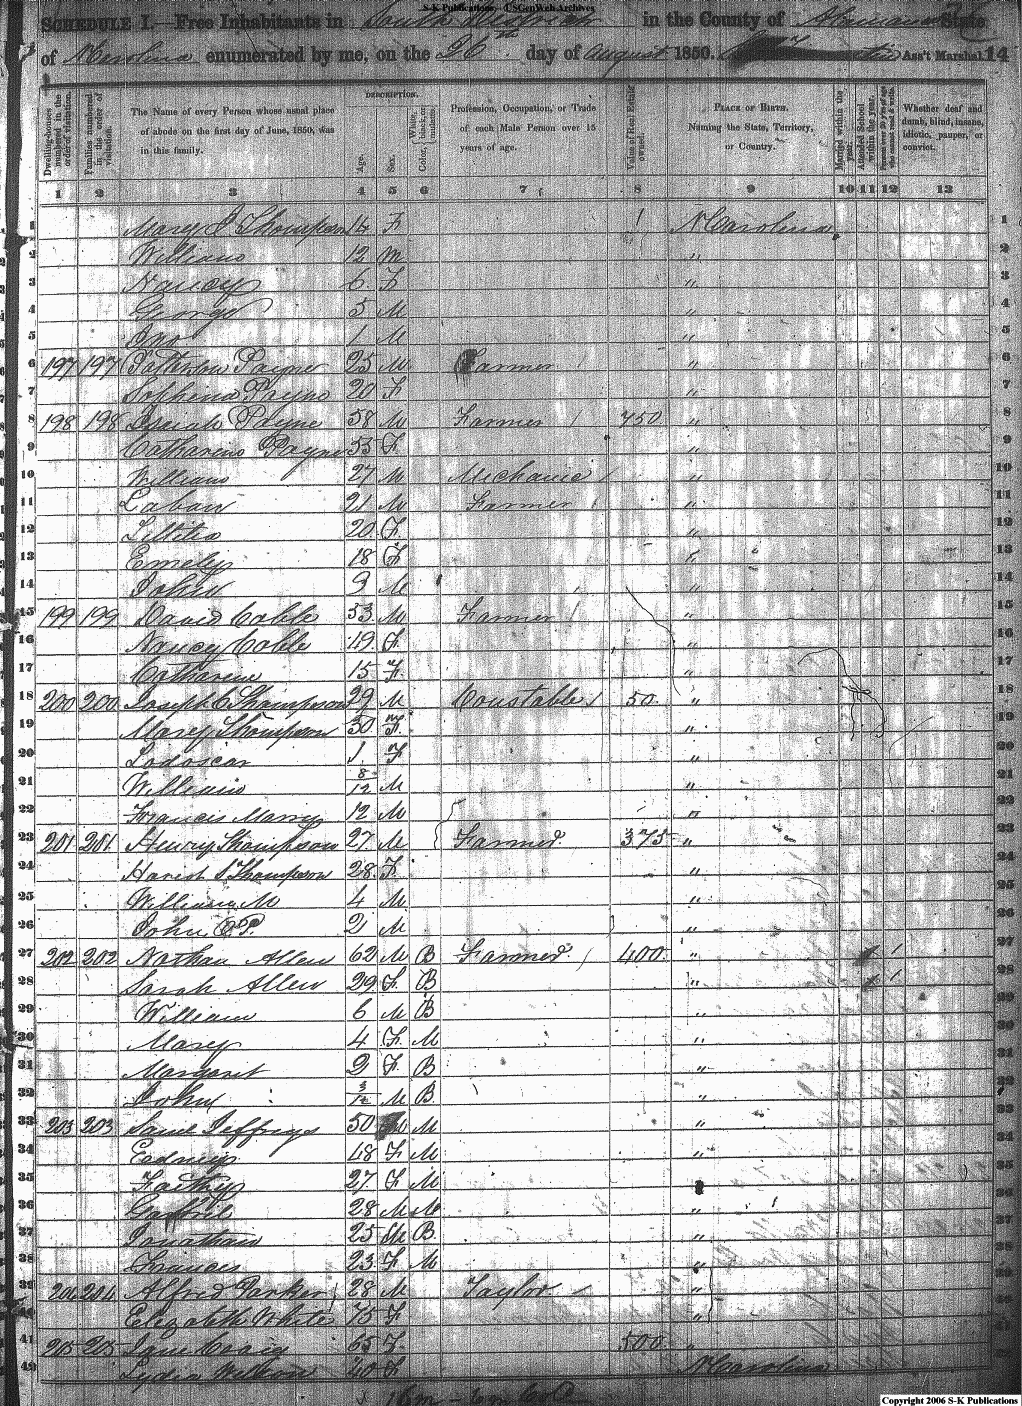 S-K Publications - USGenWeb Archives
SCHEDULE I.—Free Inhabitants in South District in the County of Alamance State
of N Carolina enumerated by me, on the 26th day of August 1850. Ass't Marshal 14
Dwelling-houses numbered in the order of visitation.
Families numbered in the order of visitation.
The Name of every Person whose usual place of abode on the first day of June, 1850, was in this family.
DESCRIPTION.
Age.
Sex.
Color, White, black, or mulatto.
Profession, Occupation, or Trade of each Male Person over 15 years of age.
Value of Real Estate owned.
PLACE OF BIRTH. Naming the State, Territory, or Country.
Married within the year.
Attended School within the year.
Persons over 20 y'rs of age who cannot read & write.
Whether deaf and dumb, blind, insane, idiotic, pauper, or convict.
1 2 3 4 5 6 7 8 9 10 11 12 13
1 Mary J Thompson 14 F N Carolina 1
2 William 12 M " 2
3 Nancy 6 F " 3
4 George 5 M " 4
5 Jno 1 M " 5
6 197 197 Payne 25 M Farmer " 6
7 Payne 20 F 7
8 198 198 Isaiah Payne 58 M Farmer 750 " 8
9 Catharine Payne 53 F " 9
10 William 27 M Mechanic " 10
11 Laban 21 M Farmer " 11
12 Lettitia 20 F " 12
13 Emely 18 F " 13
14 John 9 M " 14
15 199 199 David Coble 53 M Farmer " 15
16 Nancy Coble 49 F " 16
17 Catharine 15 F " 17
18 200 200 Joseph C Thompson 29 M Constable 50 " 18
19 Mary Thompson 30 F " 19
20 1 F " 20
21 William 8/12 M " 21
22 Francis Marry 12 M " 22
23 201 201 Henry Thompson 27 M Farmer 375 " 23
24 Thompson 28 F " 24
25 William M 4 M " 25
26 John P. 2 M " 26
27 202 202 Nathan Allen 62 M B Farmer 400 " 1 27
28 Sarah Allen 29 F B " 1 28
29 William 6 M B " 29
30 Mary 4 F M " 30
31 Margaret 2 F B " 31
32 John 3/12 M B " 32
33 203 203 Saml Jeffrys 50 M M " 33
34 48 F M " 34
35 27 F M 35
36 28 M M " 36
37 Jonathan 25 M B " 37
38 Frances 23 F M " 38
39 204 204 Alfred Parker 28 M Taylor " 39
40 Elizabeth White 75 F " 40
41 205 205 Jane Craig 65 F 500 " 41
42 Lydia 40 F N Carolina 42
Copyright 2006 S-K Publications